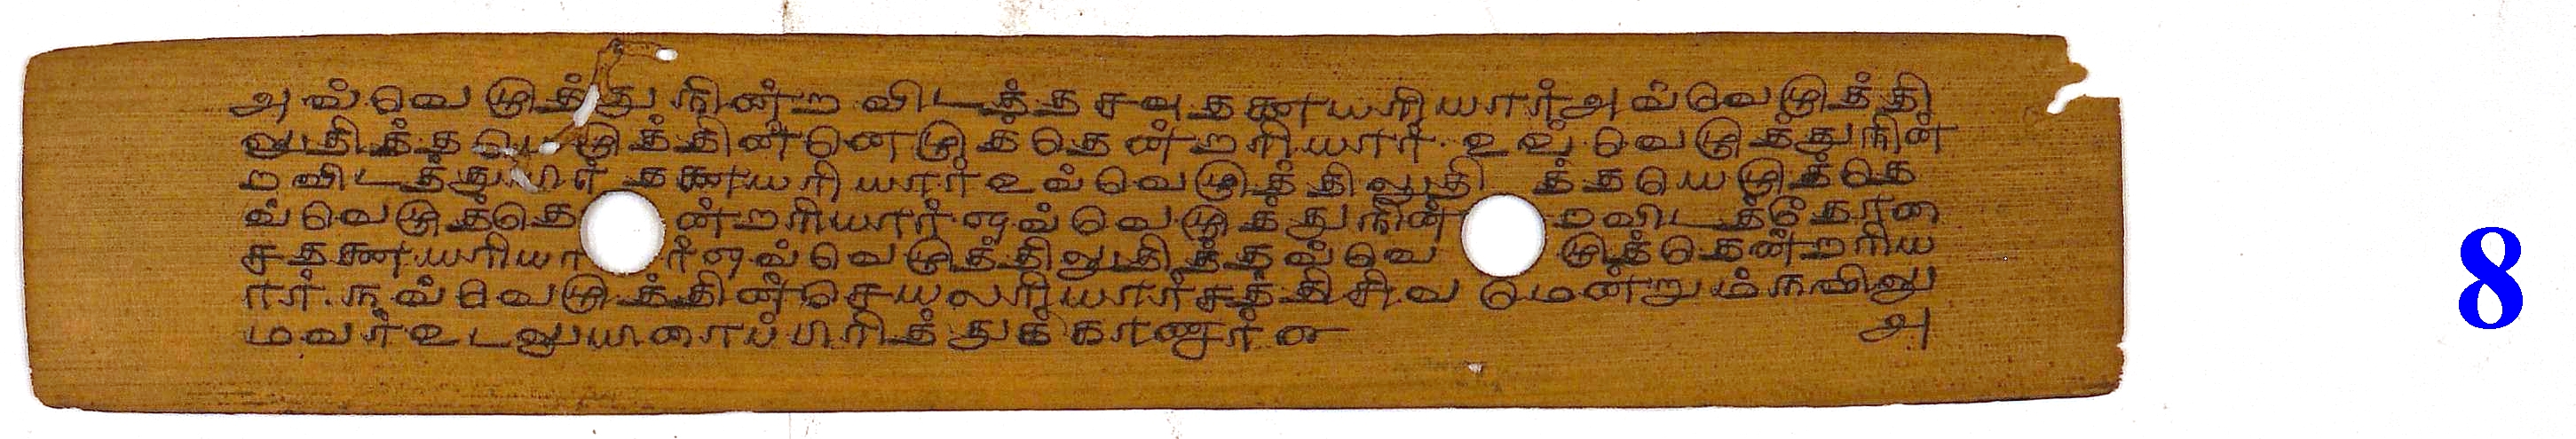 அவ்வெழுத்து நின்ற விடத்தசவு தணையரியார்அவ்வெழுத்தி
லுதித்த யெழுத்தின்னெழுத்தென்றரியார். உவ்வெழுத்துநின்
றவிடத்துயிர் தணையரியார்உவ்வெழுத்திலுதி த்தயெழுத்தெ
வ்வெழுத்தெ ன்றரியார்.ஏவ்வெழுத்துநின் றவிடத்தோசை
சதணையரியா ர்ஏவ்வெழுத்திலுதித்தவ்வெ ழுத்தென்றரிய
ார்.ஈவ்வெழுத்தின்செயலரியார்சத்திசிவ மென்றும்நவிலு
மவர்உடலுயிரைப்பிரித்துக்காணார் ௭
அ
8